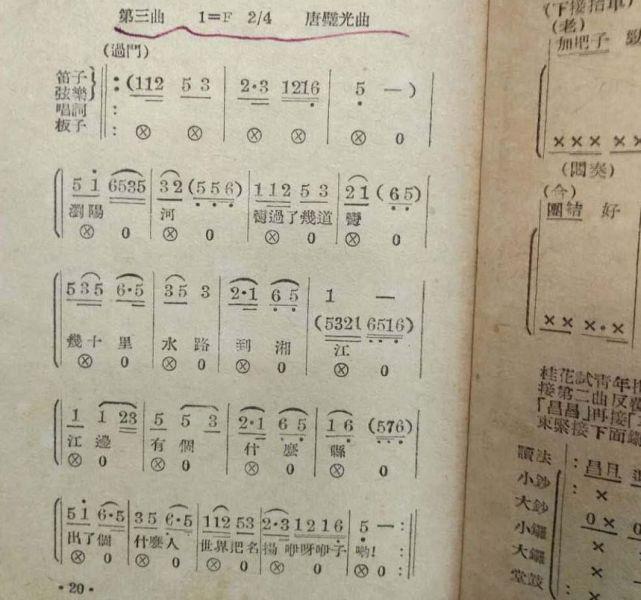 第三曲 1=F 2/4 唐璧光曲
(過門)
笛子 弦樂 (112 5 3 | 2·3 1216 | 5 — )
唱詞
板子 ⊗ ⊗ | ⊗ ⊗ | ⊗ 0
5 i 6535 | 32 (556) | 112 53 | 21 (65)
瀏陽 河 彎過了幾道 彎
⊗ 0 ⊗ 0 ⊗ 0 ⊗ 0
535 6·5 | 35 3 | 2·1 65 | 1 —
(5321 6516)
幾十 里 水 路 到 湘 江
⊗ 0 ⊗ 0 ⊗ 0 ⊗ 0
1 1 23 | 5 5 3 | 2·1 65 | 16 (576)
江 邊 有 個 什 麽 縣
⊗ 0 ⊗ 0 ⊗ 0 ⊗ 0
5i 6·5 | 35 6·5 | 112 53 | 2·3 1216 | 5 —
出了個 什麽人 世界把名 揚 咿呀咿子 喲!
⊗ 0 ⊗ 0 ⊗ 0 ⊗ 0 ⊗ 0
·20·
(老)
加吧子
× × × × ×
(悶奏)
(合)
團結 好
× × × · ×
桂花試青年
接第二曲反
「昌昌」再接
東緊接下面鑼
讀法 : 昌且
小鈔 ×
大鈔
小鑼 0 ×
大鑼 ×
堂鼓 ×